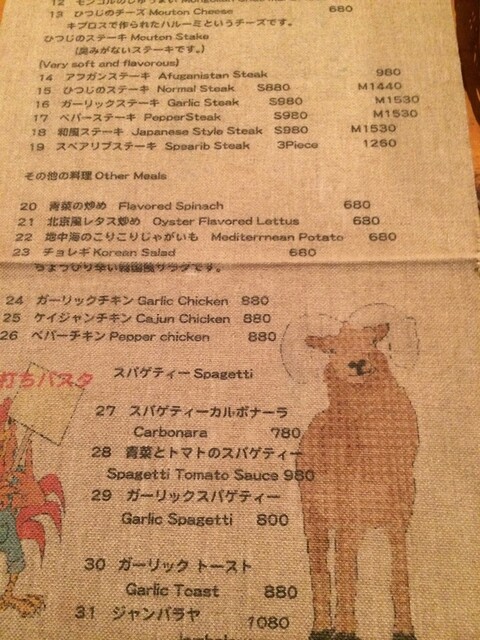 12 モンゴルのしゅうまい
13 ひつじのチーズ Mouton Cheese 680
キプロスで作られたハルーミというチーズです。
ひつじのステーキ Mouton Stake
(臭みがないステーキです。)
(Very soft and flavorous)
14 アフガンステーキ Afuganistan Steak 980
15 ひつじのステーキ Normal Steak S880 M1440
16 ガーリックステーキ Garlic Steak S980 M1530
17 ペパーステーキ PepperSteak S980 M1530
18 和風ステーキ Japanese Style Steak S980 M1530
19 スペアリブステーキ Spearib Steak 3Piece 1260
その他の料理 Other Meals
20 青菜の炒め Flavored Spinach 680
21 北京風レタス炒め Oyster Flavored Lettus 680
22 地中海のこりこりじゃがいも Mediterrnean Potato 680
23 チョレギ Korean Salad 680
ちょっぴり辛い韓国風サラダです。
24 ガーリックチキン Garlic Chicken 880
25 ケイジャンチキン Cajun Chicken 880
26 ペパーチキン Pepper chicken 880
打ちパスタ
スパゲティー Spagetti
27 スパゲティーカルボナーラ
Carbonara 780
28 青菜とトマトのスパゲティー
Spagetti Tomato Sauce 980
29 ガーリックスパゲティー
Garlic Spagetti 800
30 ガーリック トースト
Garlic Toast 880
31 ジャンバラヤ 1080